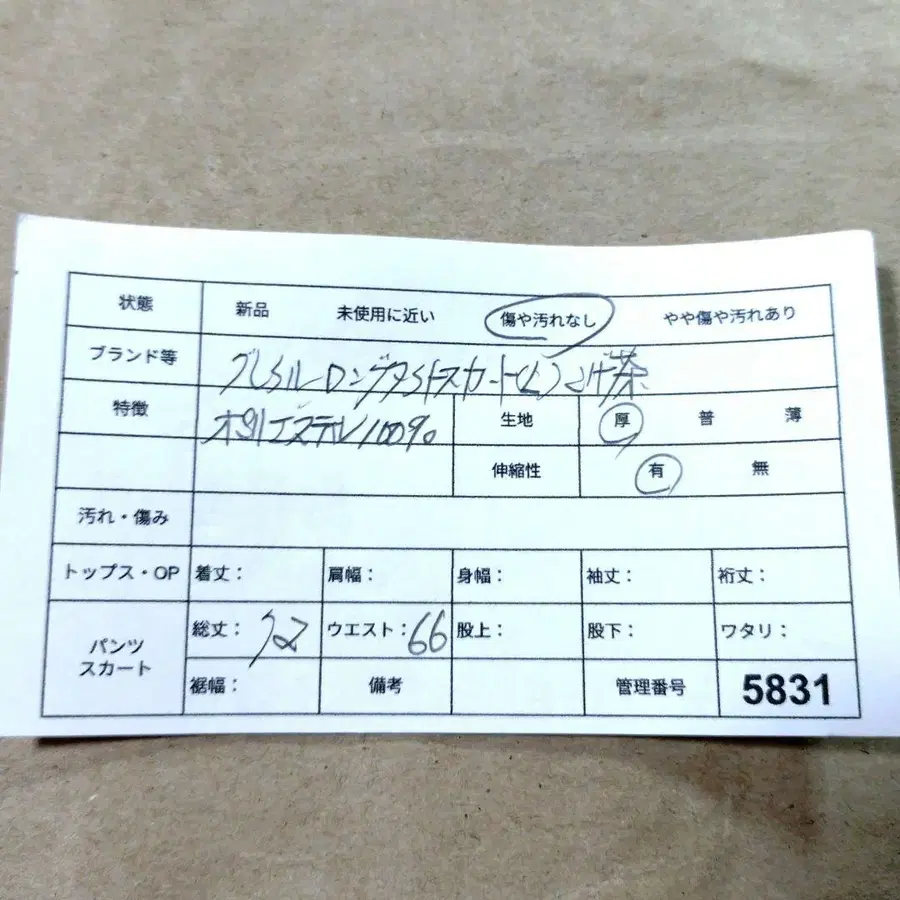 状態 新品 未使用に近い 傷や汚れなし やや傷や汚れあり
ブランド等 ロングタイトスカート(L)こげ茶
特徴 ポリエステル100% 生地 厚 普 薄
伸縮性 有 無
汚れ・傷み
トップス・OP 着丈: 肩幅: 身幅: 袖丈: 裄丈:
パンツ スカート 総丈: 72 ウエスト: 66 股上: 股下: ワタリ:
裾幅: 備考 管理番号 5831